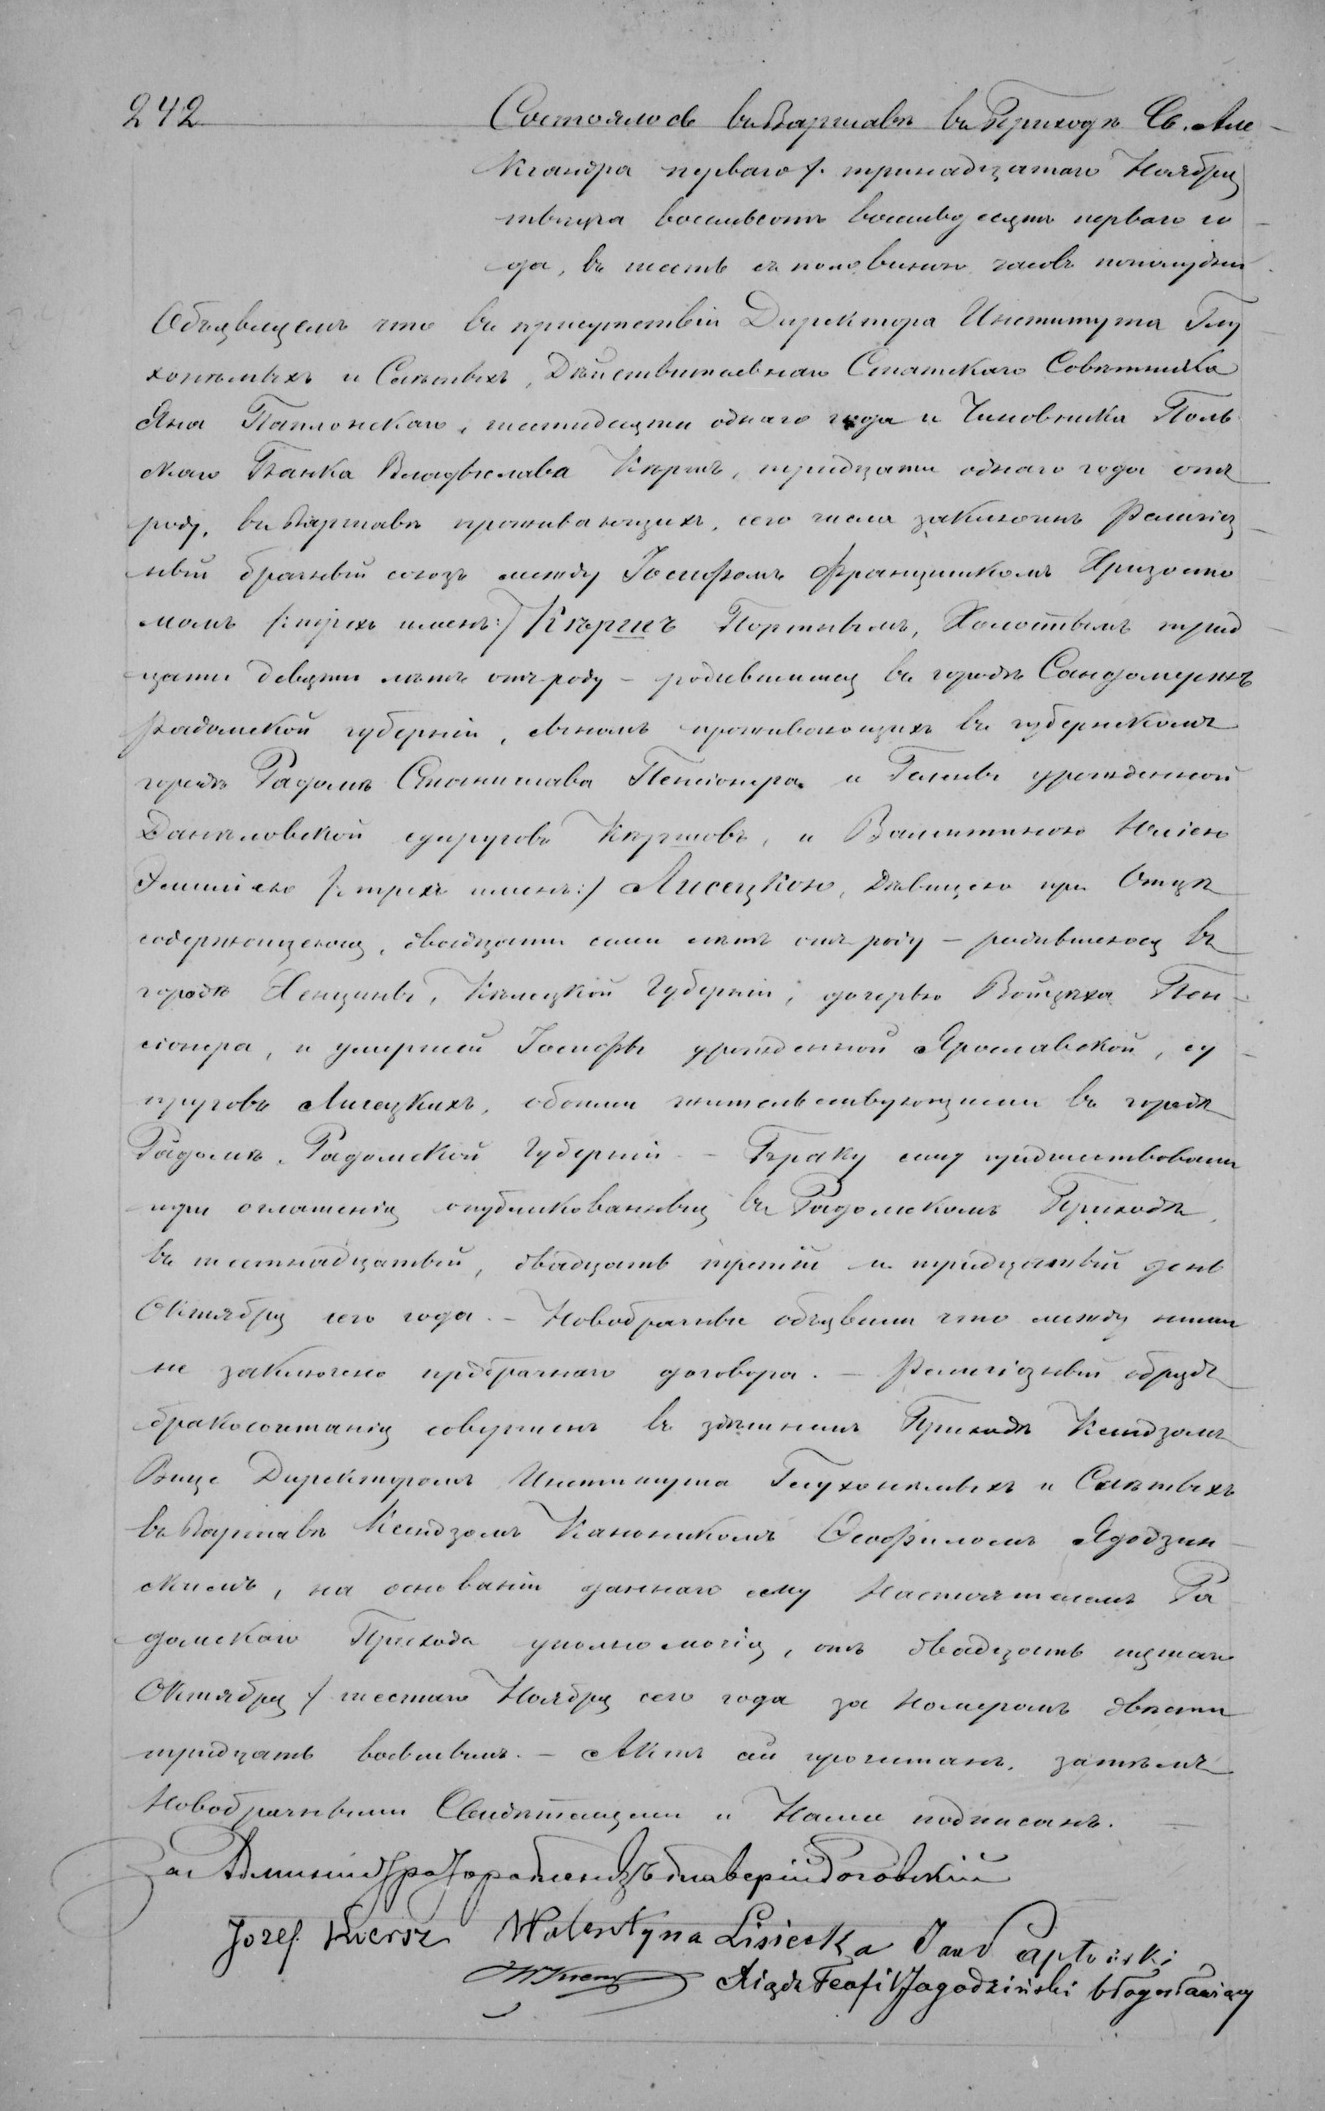 242 Состоялось въ Варшавѣ въ Приходѣ Св. Але-
ксандра перваго /: тринадцатаго Ноября
тысяча восемьсотъ восемьдесятъ перваго го-
да, въ шесть съ половиною часовъ пополудни.
Объявляемъ что въ присутствіи Директора Института Глу-
хонѣмыхъ и Слѣпыхъ, Дѣйствительнаго Статскаго Совѣтника
Яна Паплонскаго, шестидесяти одного года и Чиновника Поль-
скаго Банка Владыслава Кѣршъ, тридцати одного года отъ
роду, въ Варшавѣ проживающихъ, сего числа заключенъ Религіоз-
ный брачный союзъ между Іосифомъ Францишкомъ Хризосто-
момъ /: трехъ именъ:/ Кѣршъ Портнымъ, Холостымъ трид-
цати девяти лѣтъ отъ роду – родившимся въ городѣ Сандомержѣ
Радомской губерніи, сыномъ проживающихъ въ губернскомъ
городѣ Радомѣ Станислава Пенсіонера и Теклы урожденной
Даниловской супруговъ Кѣршовъ, и Валентиною Юліею
Эмиліею /: трехъ именъ:/ Лисецкою, Дѣвицею при Отцѣ
содержащеюся, двадцати семи лѣтъ отъ роду – родившеюся въ
городѣ Хенцины, Кѣлецкой Губерніи, дочерью Войцѣха Пен-
сіонера, и умершей Іосифы урожденной Ярославской, су-
пруговъ Лисецкихъ, обоими жительствующими въ городѣ
Радомѣ, Радомской Губерніи. – Браку сему предшествовали
три оглашенія опубликованныя въ Радомскомъ Приходѣ,
въ шестнадцатый, двадцать третій и тридцатый день
Октября сего года. – Новобрачные объявили что между ними
не заключено предбрачнаго договора. – Религіозный обрядъ
бракосочетанія совершенъ въ здѣшнемъ Приходѣ Ксендзомъ
Вице Директоромъ Института Глухонѣмыхъ и Слѣпыхъ
въ Варшавѣ Ксендзомъ Каноникомъ Ѳеофиломъ Ягодзин-
скимъ, на основаніи даннаго ему Настоятелемъ Ра-
домскаго Прихода уполномочія, отъ двадцать пятаго
Октября / шестаго Ноября сего года за Номеромъ двѣсти
тридцать восьмымъ. – Актъ сей прочитанъ, затѣмъ
Новобрачными Свидѣтелями и Нами подписанъ. –
За Администратора
Józef Kiersz Walentyna Lisiecka Jan Papłoński
WKiersz Xiądz Teofil Jagodziński błogosławiący